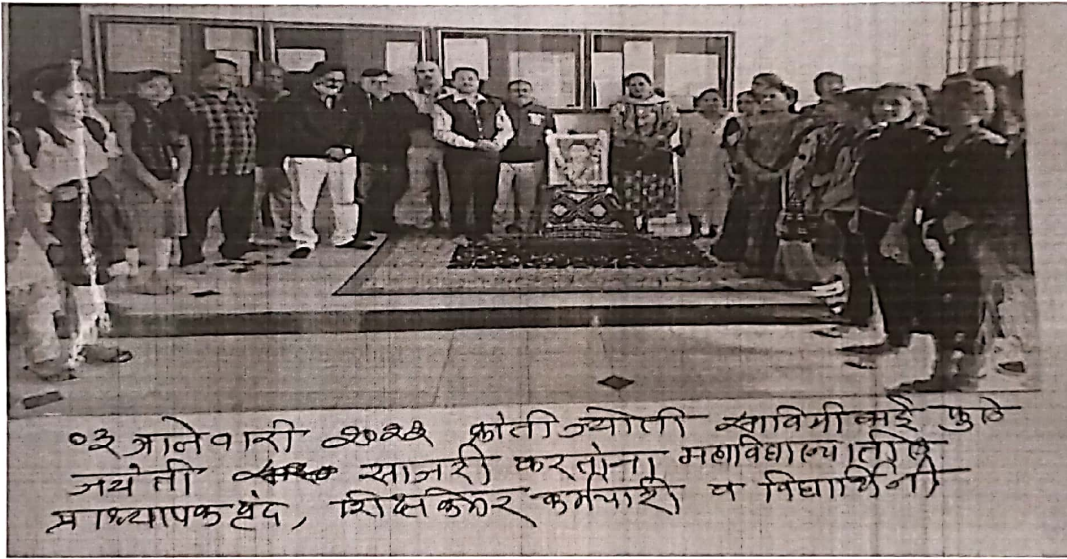 ०३ जानेवारी २०२२ क्रांती ज्योती सावित्रीबाई फुले
जयंती साजरी करतांना महाविद्यालयातील
प्राध्यापकवृंद, शिक्षकेतर कर्मचारी व विद्यार्थिनी